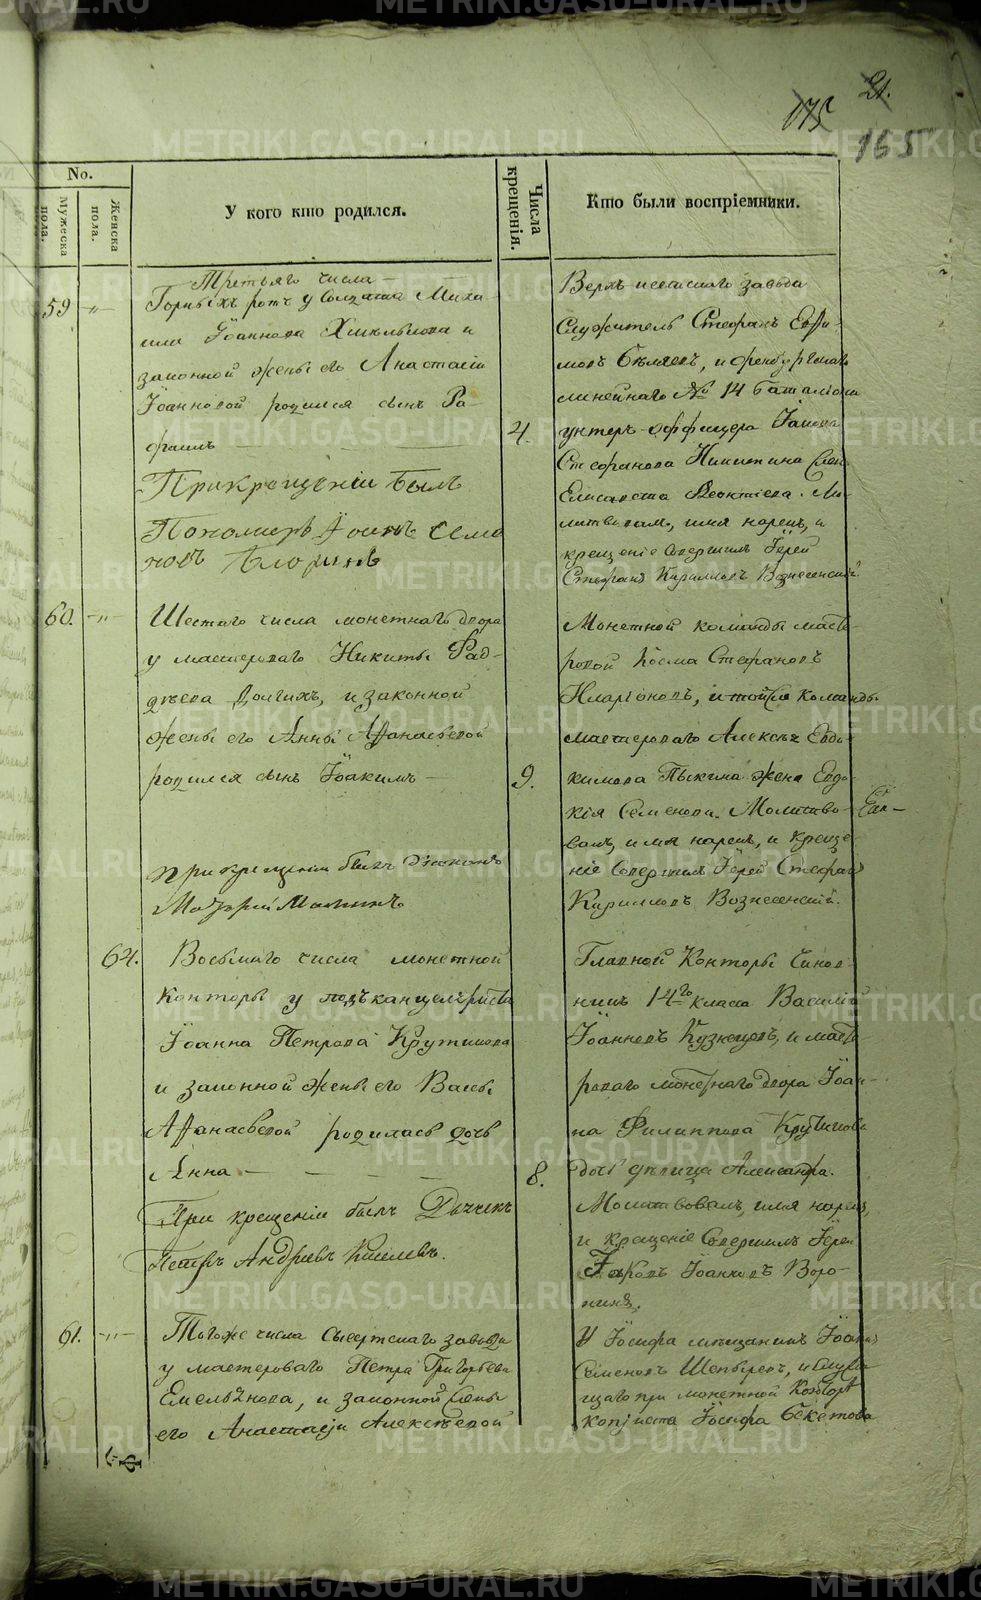 21.
175
165
No.
Мужеска пола.
Женска пола.
У кого кто родился.
Числа крещенія.
Кто были воспріемники.
59
Третьяго числа
Горныхъ ротъ у Солдата Миха
ила Іоаннова и
законной жены его Анастасіи
Іоанновой родился сынъ Ра-
фаилъ
При крещеніи былъ
Пономарь Іоаннъ Семе
новъ Флоринъ
4.
Верхъ-исетскаго завода
Служитель Стефанъ Евфи-
мовъ Бѣляевъ, и Оренбургскаго
линейнаго № 14 баталіона
унтеръ-оффицера Іакова
Стефанова Никитина
Елисавета Леонтіева. Мо-
литвовалъ, имя нарекъ, и
крещеніе совершилъ Іерей
Стефанъ Кирилловъ Вознесенскій.
60.
Шестаго числа монетнаго двора
у мастероваго Никиты Фад-
дѣева Долгихъ, и законной
жены его Анны Афанасьевой
родился сынъ Іоакимъ
при крещеніи былъ Діаконъ
Малининъ
9.
Монетной команды масте-
ровой Косма Стефановъ
Иларіоновъ, и тойже команды
мастероваго Алексѣя Евдо-
кимова Пыкина жена Евдо-
кія Семенова. Молитво-
валъ, имя нарекъ, и креще-
ніе совершилъ Іерей Стефанъ
Кирилловъ Вознесенскій.
64.
Восьмаго числа монетной
Конторы у подъканцеляриста
Іоанна Петрова
и законной жены его Вассы
Афанасьевой родилась дочь
Анна
При крещеніи былъ Дьячекъ
Петръ Андреевъ Киселевъ.
8.
Главной Конторы Чинов-
никъ 14го класса Василій
Іоанновъ Кузнецовъ, и масте-
роваго монетнаго двора Іоан-
на Филиппова
дочь дѣвица Александра.
Молитвовалъ, имя нарекъ,
и крещеніе совершилъ Іерей
Іаковъ Іоанновъ Воро-
нинъ.
61.
Тогоже числа Сысертскаго завода
у мастероваго Петра Григорьева
Емельянова, и законной
его Анастасіи Алексѣевой
У Іосифа мѣщанинъ Іоаннъ
Семеновъ, и служа
щаго при монетной Конторѣ
копіиста Іосифа Бекетова
METRIKI.GASO-URAL.RU